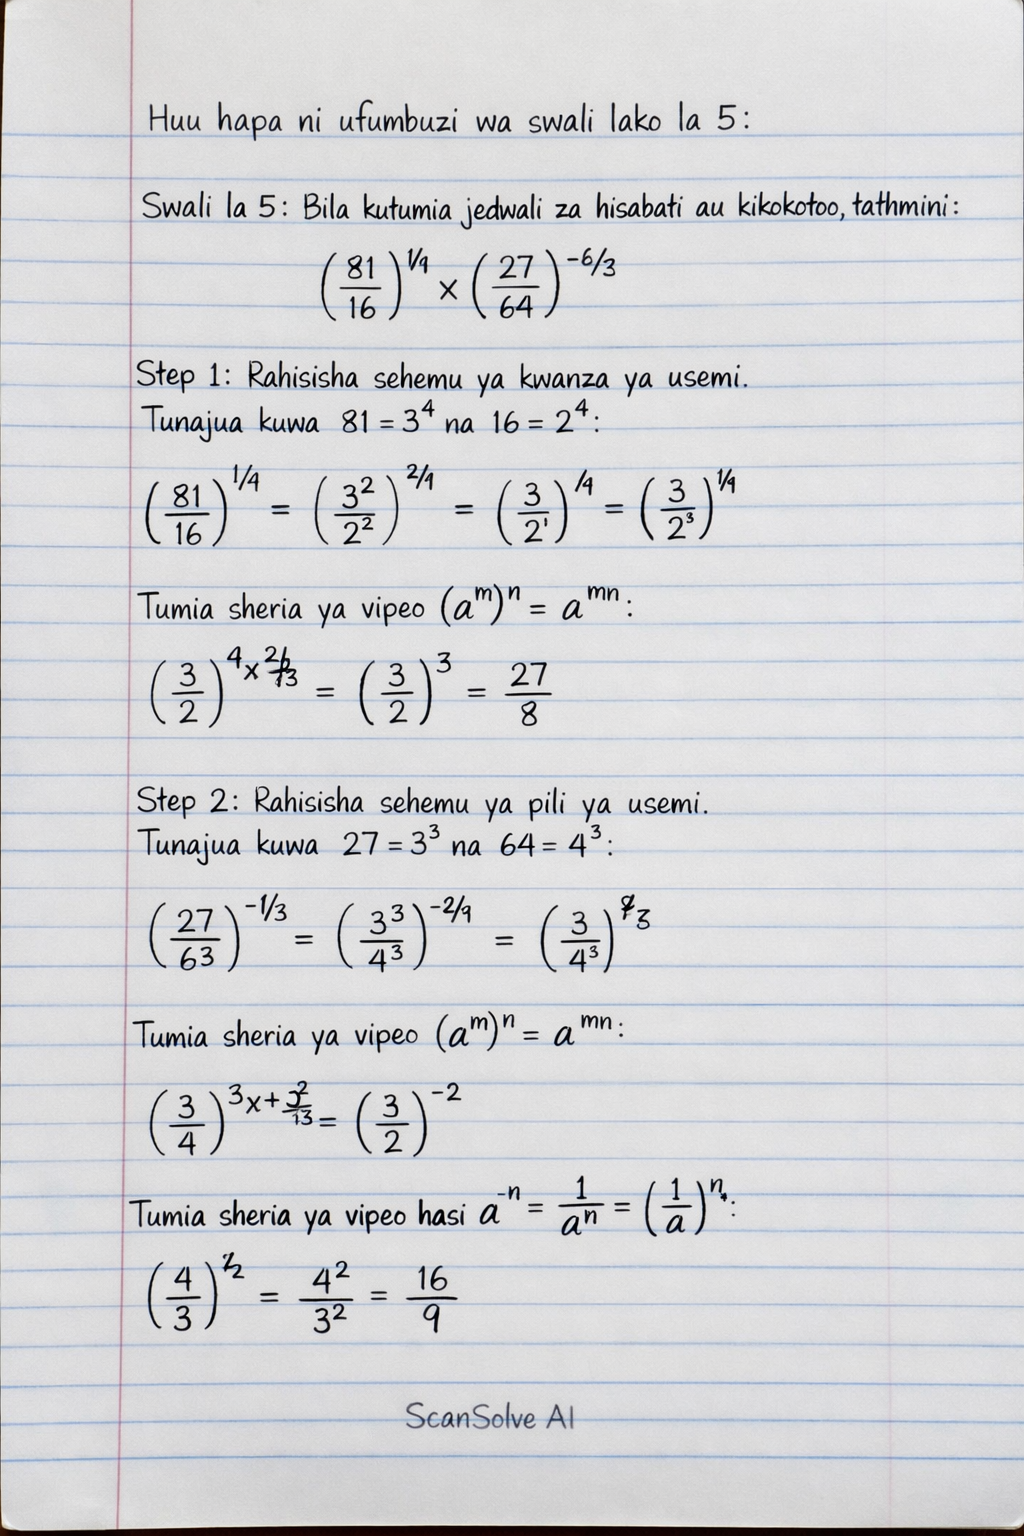 Huu hapa ni ufumbuzi wa swali lako la 5:
Swali la 5: Bila kutumia jedwali za hisabati au kikokotoo, tathmini:
(81/16)^1/9 × (27/64)^-6/3
Step 1: Rahisisha sehemu ya kwanza ya usemi.
Tunajua kuwa 81 = 3⁴ na 16 = 2⁴:
(81/16)^1/4 = (3²/2²)^2/9 = (3/2¹)^/4 = (3/2³)^1/9
Tumia sheria ya vipeo (a^m)^n = a^mn:
(3/2)^4× = (3/2)³ = 27/8
Step 2: Rahisisha sehemu ya pili ya usemi.
Tunajua kuwa 27 = 3³ na 64 = 4³:
(27/63)^-1/3 = (3³/4³)^-2/9 = (3/4³)
Tumia sheria ya vipeo (a^m)^n = a^mn:
(3/4)^3x+ = (3/2)^-2
Tumia sheria ya vipeo hasi a^-n = 1/a^n = (1/a)^n:
(4/3) = 4²/3² = 16/9
ScanSolve AI